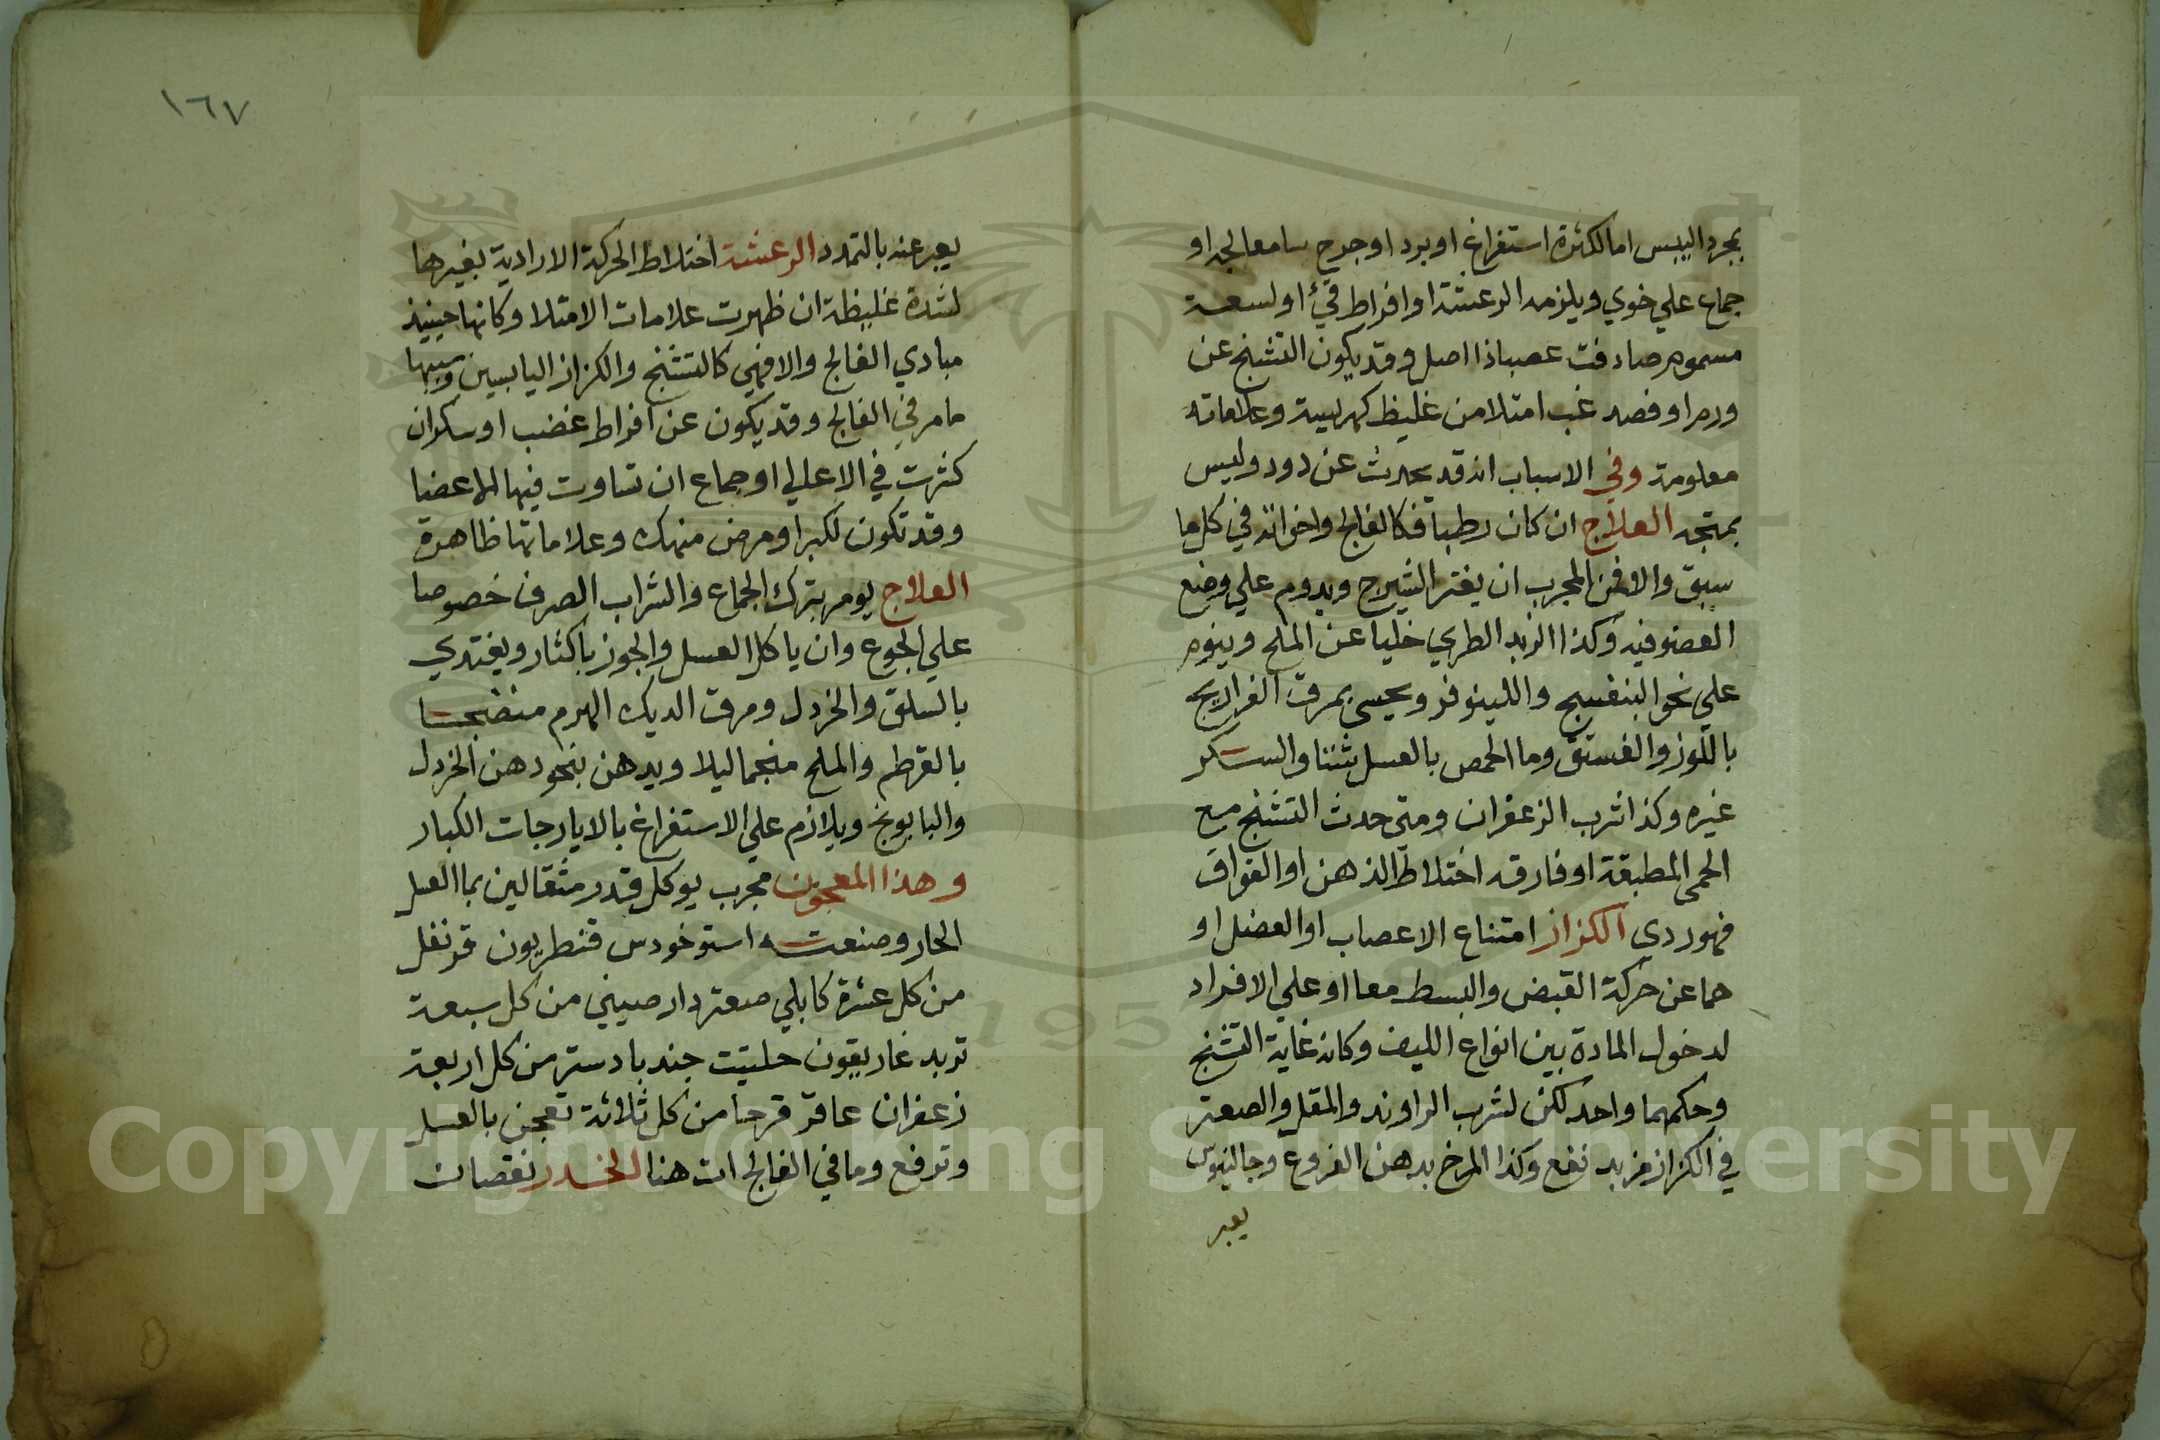 بمجرد اليبس اما لكثرة استفراغ او برد او جرح سا معالجه او
جماع علي خوي ويلزمه الرعشة او افراط قئ او لسعة
مسموم صادفت عصبا ذا اصل وقد يكون التشنج عن
ورم او فصد غب امتلا من غليظ كهريسة وعلاماته
معلومة وفي الاسباب انه قد يحدث عن دود وليس
بمتجه العلاج ان كان رطبا فكالفالج واخوانه في كل ما
سبق والا فمن المجرب ان يفتر الشيرج ويدوم علي وضع
العضو فيه وكذا الزبد الطري خليا عن الملح وينوم
علي نحو البنفسج واللينوفر ويحسي بمرق الفراريج
باللوز والفستق وما الحمص بالعسل شتا والسكر
غيره وكذا شرب الزعفران ومتي حدث التشنج مع
الحمي المطبقة او فارقه اختلاط الذهن او الفواق
فهو ردي الكزاز امتناع الاعصاب او العضل او
هما عن حركة القبض والبسط معا او علي الافراد
لدخول المادة بين انواع الليف وكانه غاية التشنج
وحكمهما واحد لكن لشرب الراوند والمقل والصعتر
في الكزاز مزيد نفع وكذا المرخ بدهن القروع وجالينوس
يعبر
١٦٧
يعبر عنه بالتمدد الرعشة اختلاط الحركة الارادية بغيرها
لشدة غليظة ان ظهرت علامات الامتلا وكانها حينيذ
مبادي الفالج والا فهي كالتشنج والكزاز اليابسين وسببها
مامر في الفالج وقد يكون عن افراط غضب او سكر ان
كثرت في الاعالي او جماع ان تساوت فيها الاعضا
وقد تكون لكبر او مرض منهك وعلاماتها ظاهرة
العلاج يومر بترك الجماع والشراب الصرف خصوصا
علي الجوع وان ياكل العسل والجوز باكثار ويغتدي
بالسلق والخردل ومرق الديك الهرم منضجا
بالقرطم والملح منجما ليلا ويدهن بنحو دهن الخردل
والبابونج ويلازم علي الاستفراغ بالايارجات الكبار
وهذا المعجون مجرب يوكل قدر مثقالين بما العسل
الحار وصنعته استوخودس قنطريون قرنفل
من كل عشرة كابلي صعتر دارصيني من كل سبعة
تربد غاريقون حلتيت جندبادستر من كل اربعة
زعفران عاقر قرحا من كل ثلاثة تعجن بالعسل
وترفع وما في الفالج ات هنا الخدر نقصان
Copyright © King Saud University
195